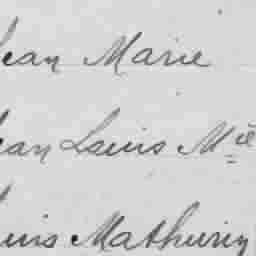 Jean Marie
Jean Louis Mie
Louis Mathurin